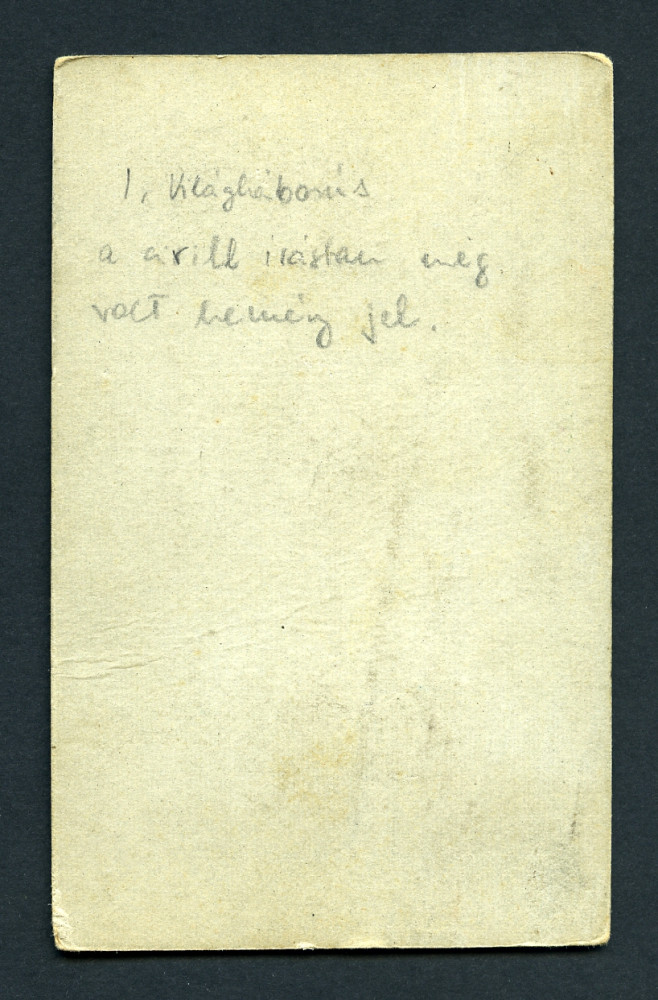 1, Világháborús
a cirill írásban még
volt kemény jel.